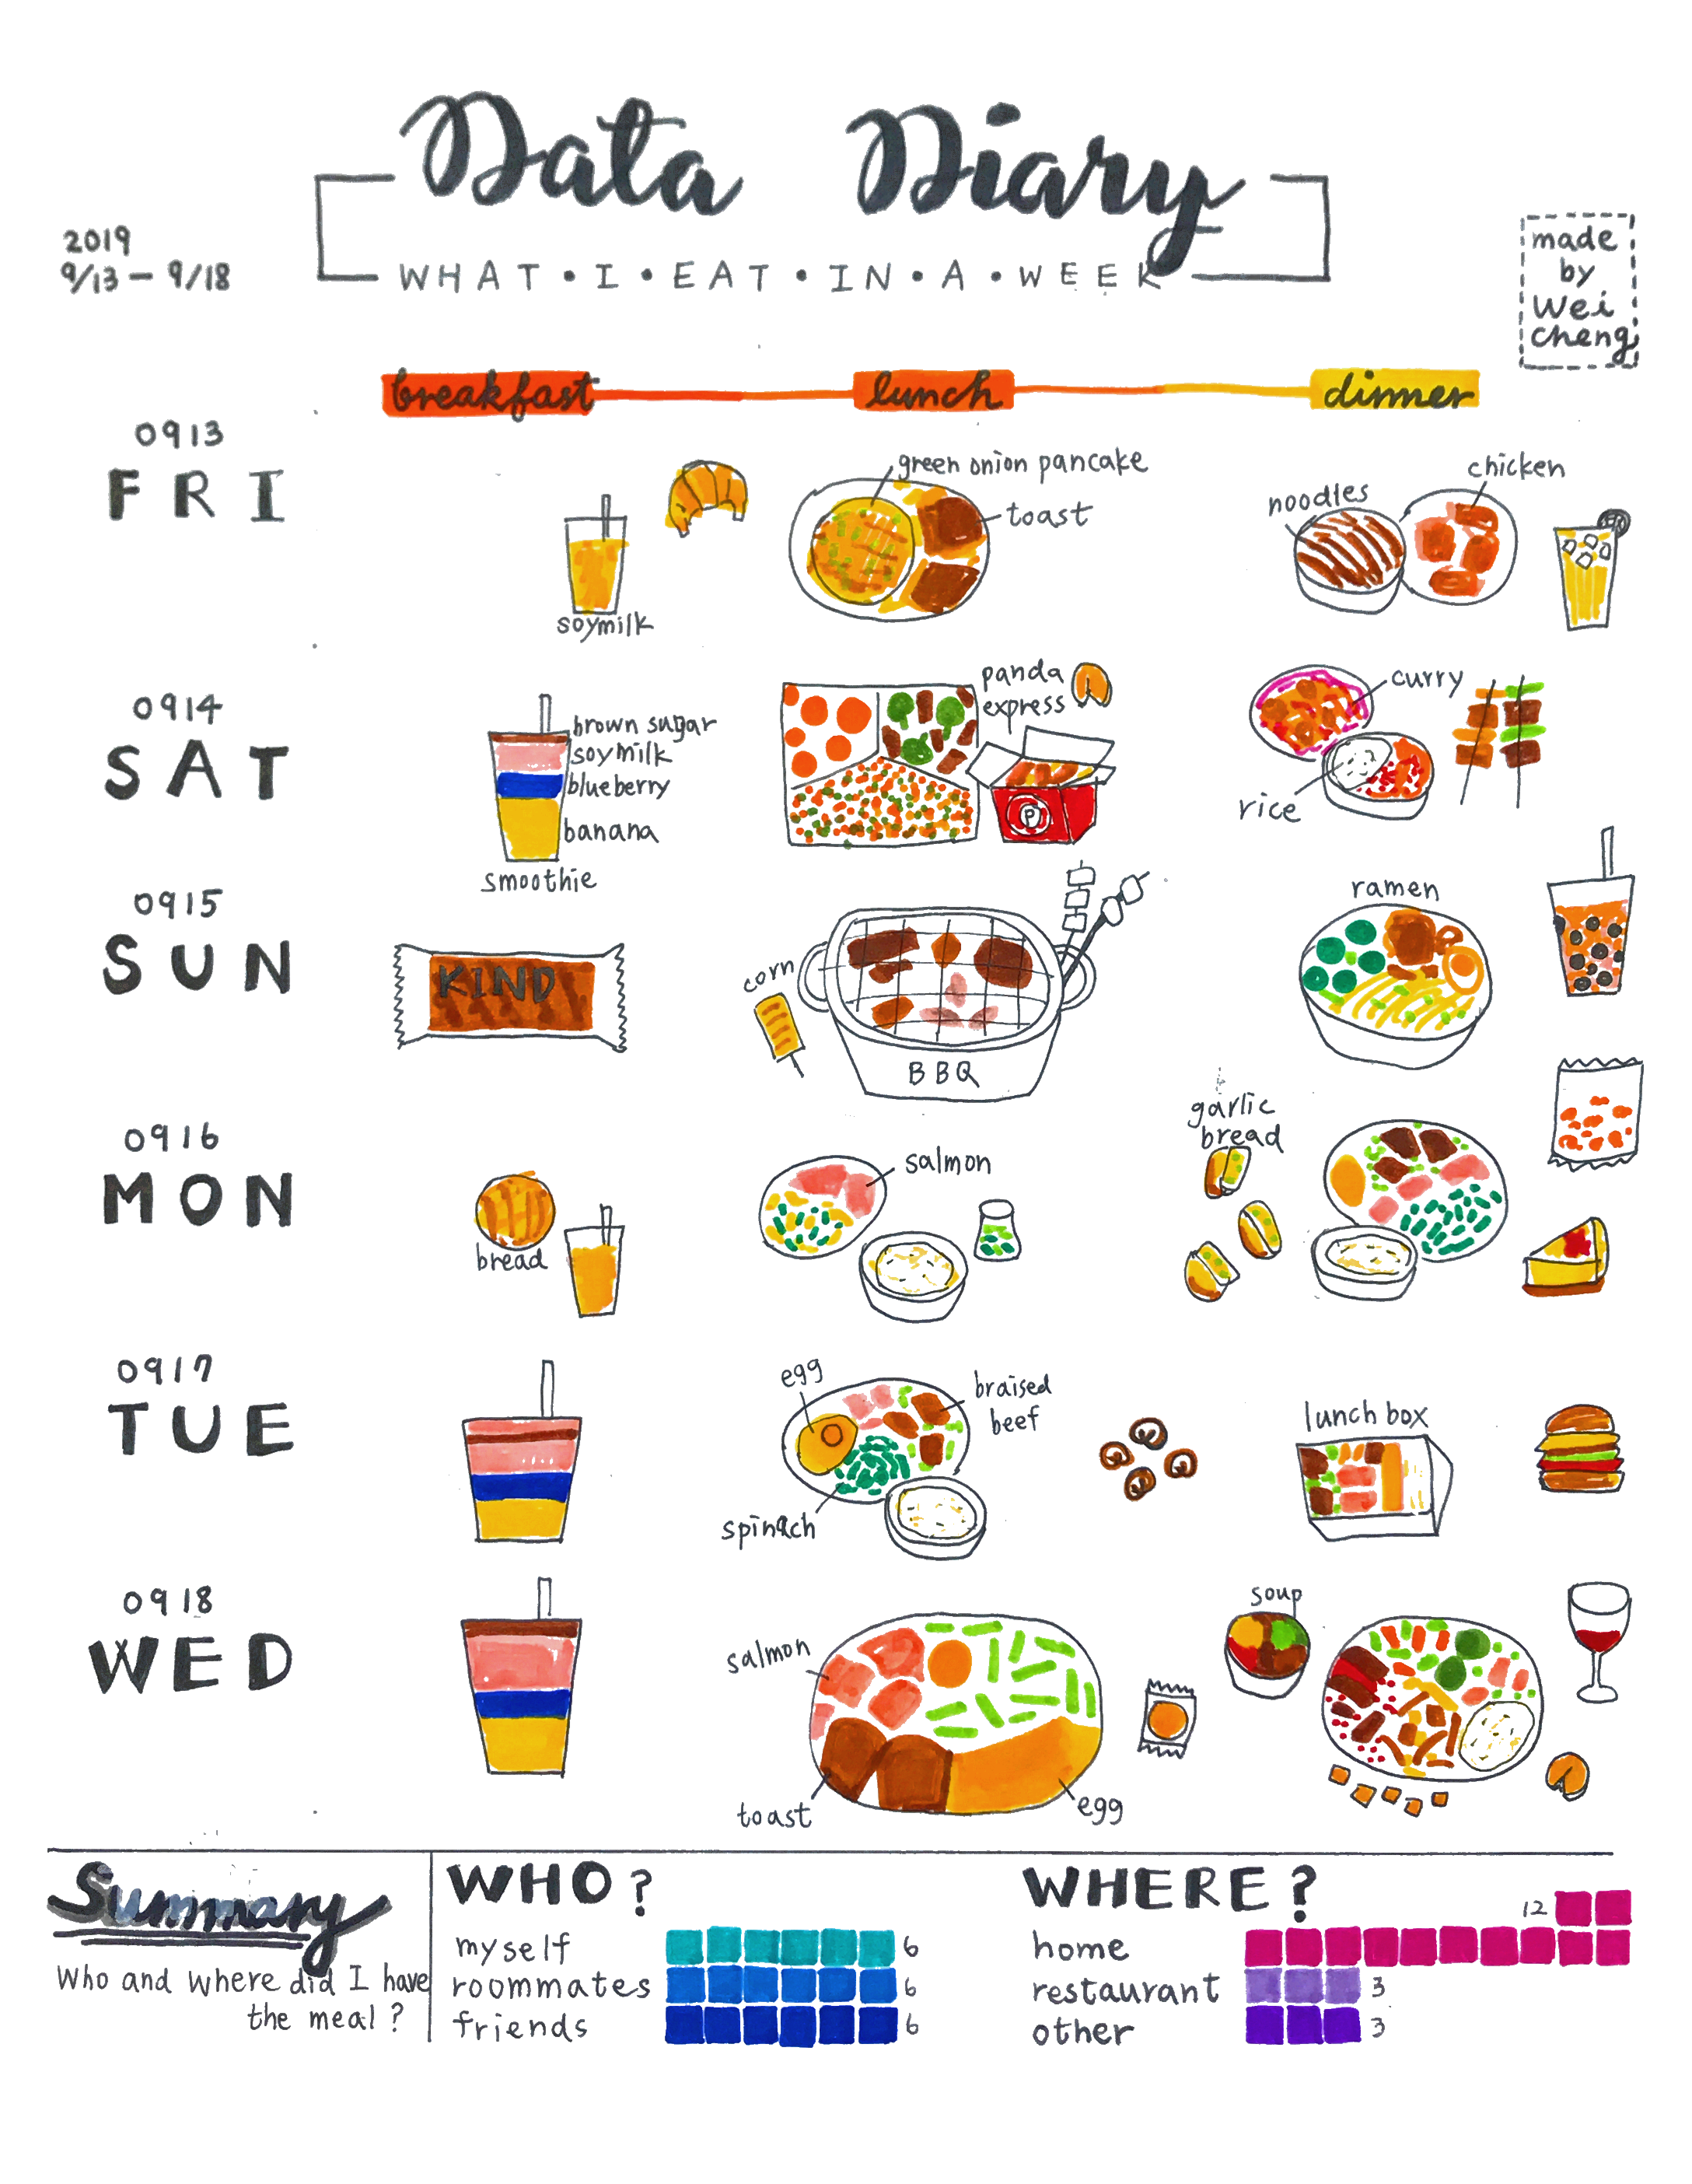 Data Diary
WHAT • I • EAT • IN • A • WEEK
2019
9/13 – 9/18
made
by
Wei
Cheng
breakfast
lunch
dinner
0913
FRI
soymilk
green onion pancake
toast
noodles
chicken
0914
SAT
brown sugar
soymilk
blueberry
banana
smoothie
panda
express
P
curry
rice
0915
SUN
KIND
corn
BBQ
ramen
0916
MON
bread
salmon
garlic
bread
0917
TUE
egg
braised
beef
spinach
lunch box
0918
WED
salmon
toast
egg
soup
Summary
Who and where did I have
the meal?
WHO?
myself 6
roommates 6
friends 6
WHERE?
12
home
restaurant 3
other 3